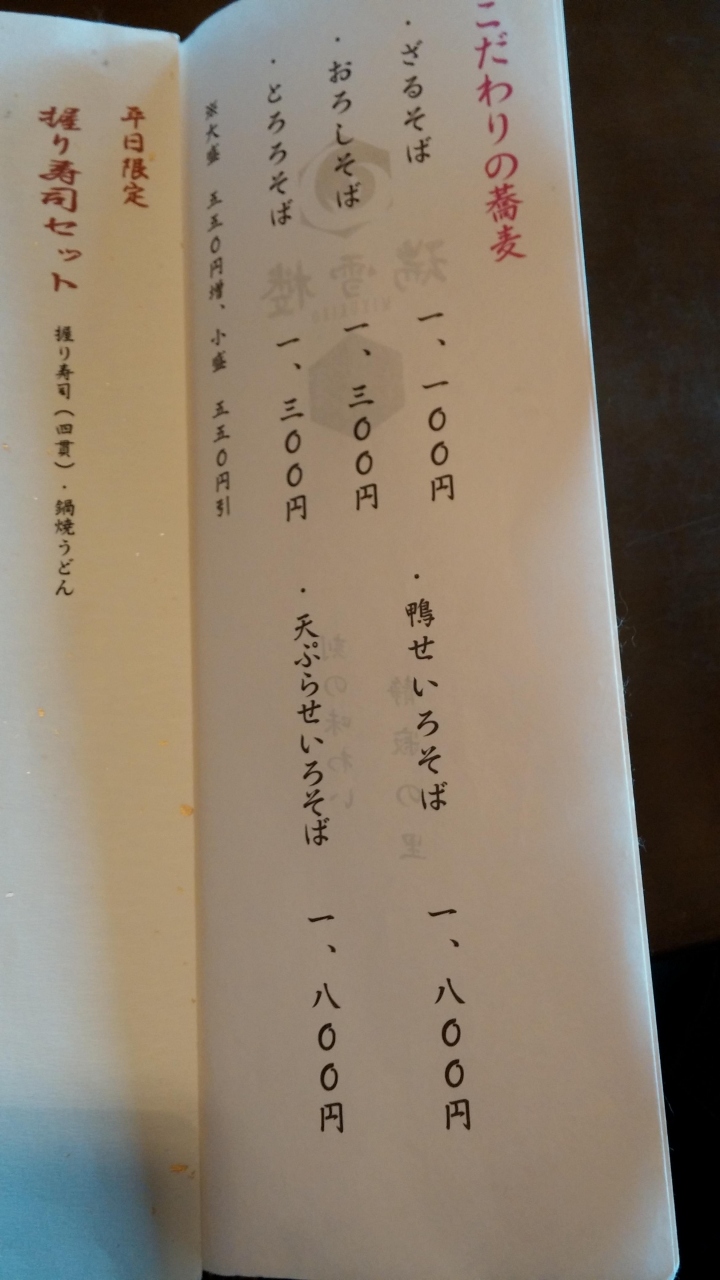 こだわりの蕎麦
・ざるそば 一、一〇〇円
・おろしそば 一、三〇〇円
・とろろそば 一、三〇〇円
※大盛 五五〇円増、小盛 五五〇円引
・鴨せいろそば 一、八〇〇円
・天ぷらせいろそば 一、八〇〇円
平日限定
握り寿司セット 握り寿司(四貫)・鍋焼うどん
瑞雪楼
静寂の里
刻の味わい